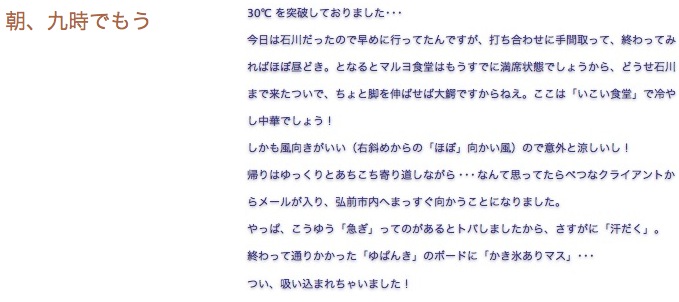 朝、九時でもう
30℃ を突破しておりました･･･
今日は石川だったので早めに行ってたんですが、打ち合わせに手間取って、終わってみ
ればほぼ昼どき。となるとマルヨ食堂はもうすでに満席状態でしょうから、どうせ石川
まで来たついで、ちょと脚を伸ばせば大鰐ですからねえ。ここは「いこい食堂」で冷や
し中華でしょう！
しかも風向きがいい（右斜めからの「ほぼ」向かい風）ので意外と涼しいし！
帰りはゆっくりとあちこち寄り道しながら･･･なんて思ってたらべつなクライアントか
らメールが入り、弘前市内へまっすぐ向かうことになりました。
やっぱ、こうゆう「急ぎ」ってのがあるとトバしましたから、さすがに「汗だく」。
終わって通りかかった「ゆぱんき」のボードに「かき氷ありマス」･･･
つい、吸い込まれちゃいました！